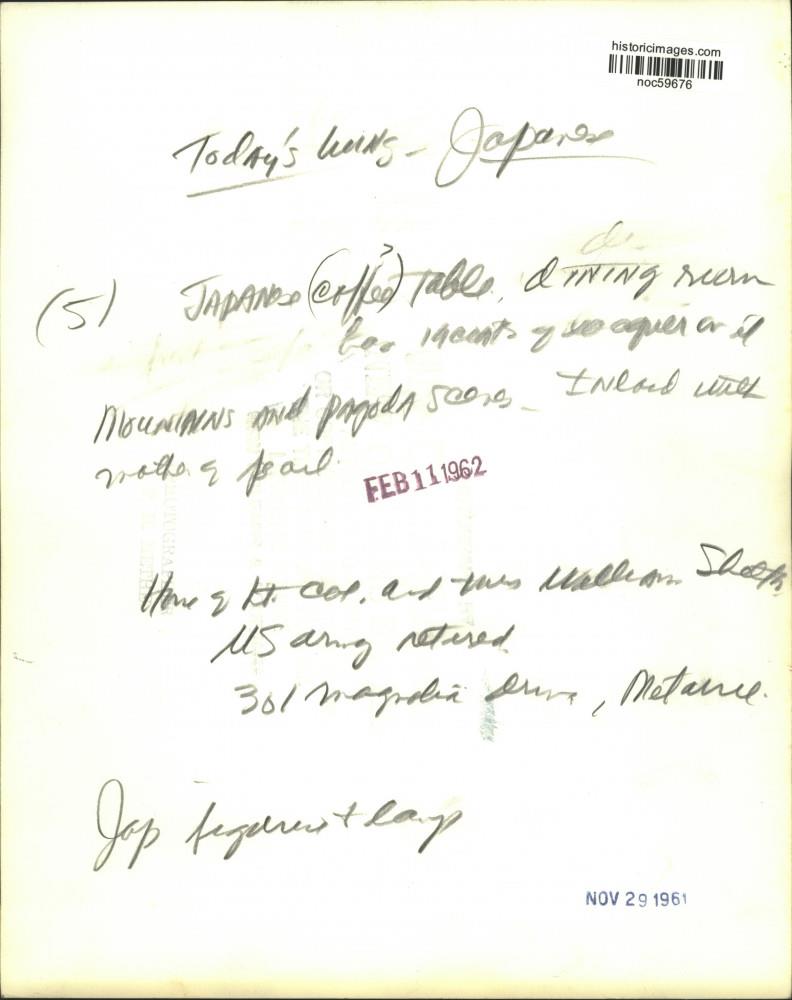 historicimages.com
noc59676
Today's living - Japanese
(5) JAPANese (coffee?) Table, dining room
has
MOUNTAINS AND pagoda scenes - Inlaid with
mother of pearl.
FEB 11 1962
Home of Lt. Col. and Mrs William
US army retired
301 Magnolia Drive, Metairie.
Jap figurine + lamp
NOV 29 1961